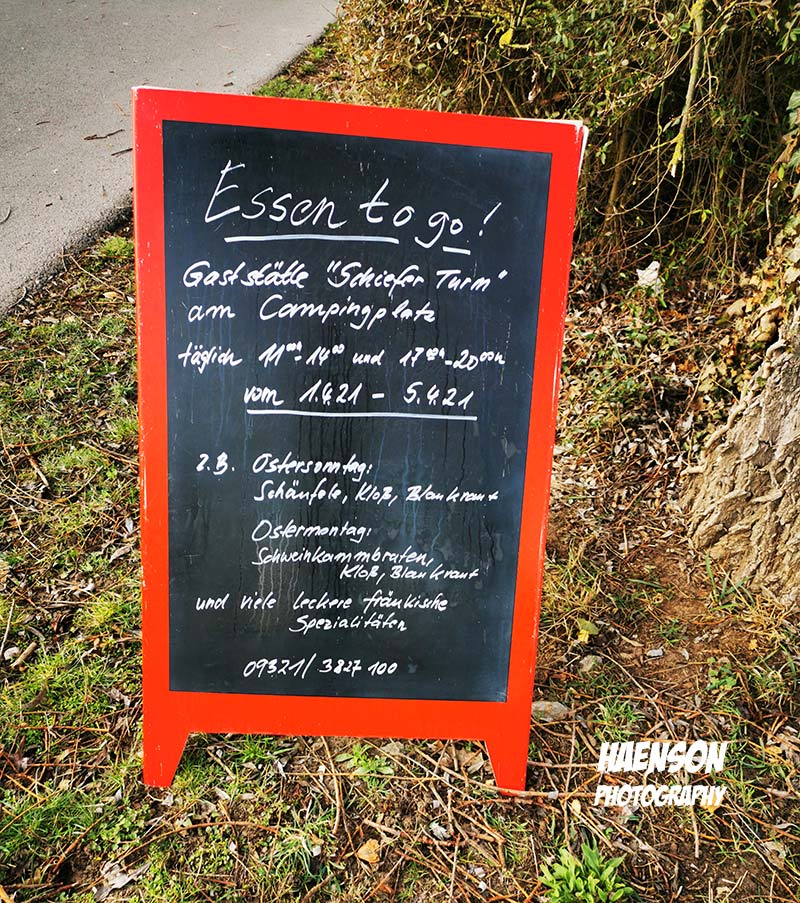 Essen to go!
Gaststätte "Schiefer Turm"
am Campingplatz
täglich 11⁰⁰-14⁰⁰ und 17⁰⁰-20⁰⁰h
vom 1.4.21 - 5.4.21
z.B. Ostersonntag:
Schäufele, Kloß, Blaukraut
Ostermontag:
Schweinkammbraten,
Kloß, Blaukraut
und viele leckere fränkische
Spezialitäten
09321/3827 100
HAENSON
PHOTOGRAPHY